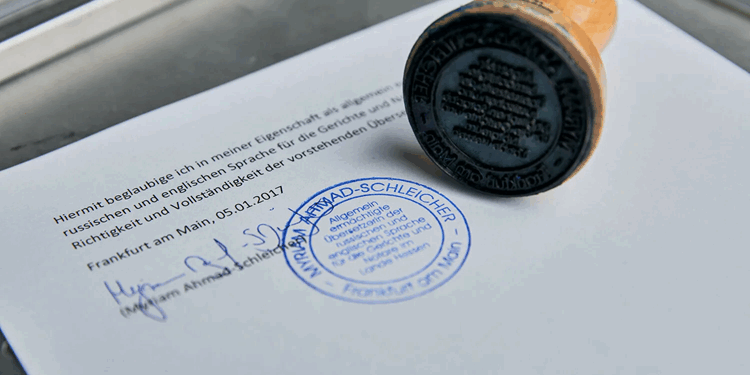 Hiermit beglaubige ich in meiner Eigenschaft als allgemein
russischen und englischen Sprache für die Gerichte und
Richtigkeit und Vollständigkeit der vorstehenden
Frankfurt am Main, 05.01.2017
(Myriam Ahmad-Schleicher)
MYRIAM AHMAD-SCHLEICHER
Allgemein
ermächtigte
Übersetzerin der
russischen und
englischen Sprache
für die Gerichte und
Notare im
Lande Hessen
Frankfurt am Main